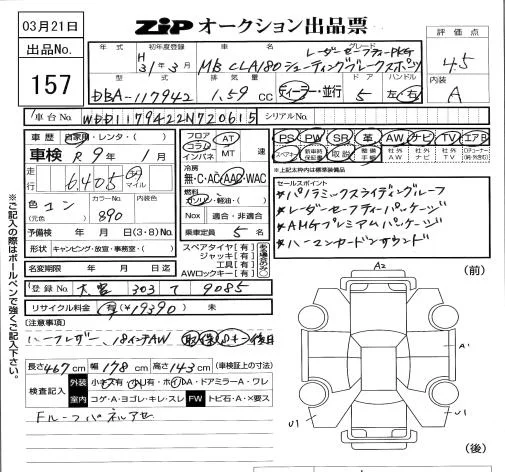 03月21日
ZIP オークション出品票
出品No.
157
年式 初年度登録 車名 グレード 評価点
H 31年3月 MB CLA180シューティングブレークスポーツ レーダーセーフティーPKG 4.5
型式 排気量 ドア ハンドル 内装
DBA-117942 1.59 cc ディーラー・並行 5 左・右 A
車台No. WDD1179422N720615 シリアルNo.
車歴 自家用・レンタ・( )
車検 R 9年 1月
走行 6,405 マイル
色 コン (元色) カラーNo. 890 内装色
予備検 年 月 日(3・8)No.
形状 キャンピング・放宣・事務室・( )
名変期限 年 月 日迄
フロア コラム インパネ AT MT 速
冷房 無・C・AC・AAC・WAC
燃料 ガソリン・軽油・( )
Nox 適合・非適合
乗車定員 5 名
スペアタイヤ[有]
ジャッキ[有]
工具[有]
AWロックキー[有]
ある場合のみ○
PS PW SR 革 AW ナビ TV エアB
スペアキー 新車時保証書 取説 整備手帳 社外AW 社外ナビ 社外TV
セールスポイント
*パノラミックスライディングルーフ
*レーダーセーフティーパッケージ
*AMGプレミアムパッケージ
*ハーマンカードンサウンド
登録No. 大宮 303 て 9085
リサイクル料金 有(¥19390) 未
[注意事項]
ハーフレザー、18インチAW 取保 後日
長さ467cm 幅178cm 高さ143cm (車検証上の寸法)
検査記入 外装 小キズ有・小凹有・ホイDA・ドアミラーA・ワレ
室内 コゲ・A・ヨゴレ・キレ・スレ FW トビ石・A・×要ス
Fルーフパネルアセ
A2
(前)
A1
U1
U1
(後)
※ご記入の際はボールペンで強くご記入下さい。